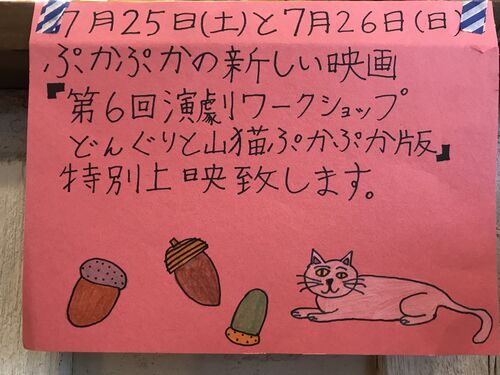 7月25日(土)と7月26日(日)
ぷかぷかの新しい映画
『第6回演劇ワークショップ
どんぐりと山猫ぷかぷか版』
特別上映致します。